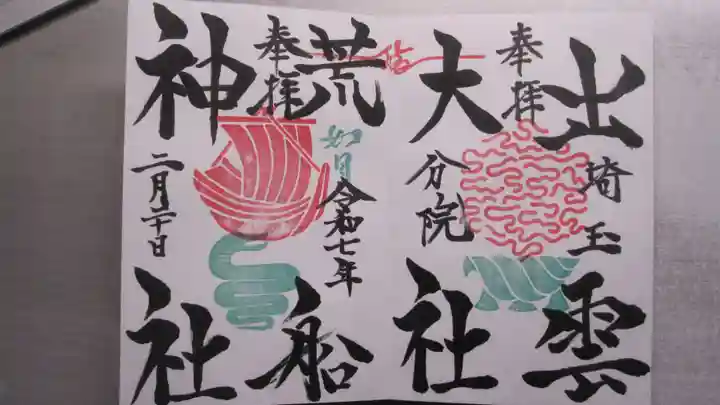 出雲
奉拝
埼玉
大社
分院
結
荒船
奉拝
如月
令和七年
神社
二月二十日